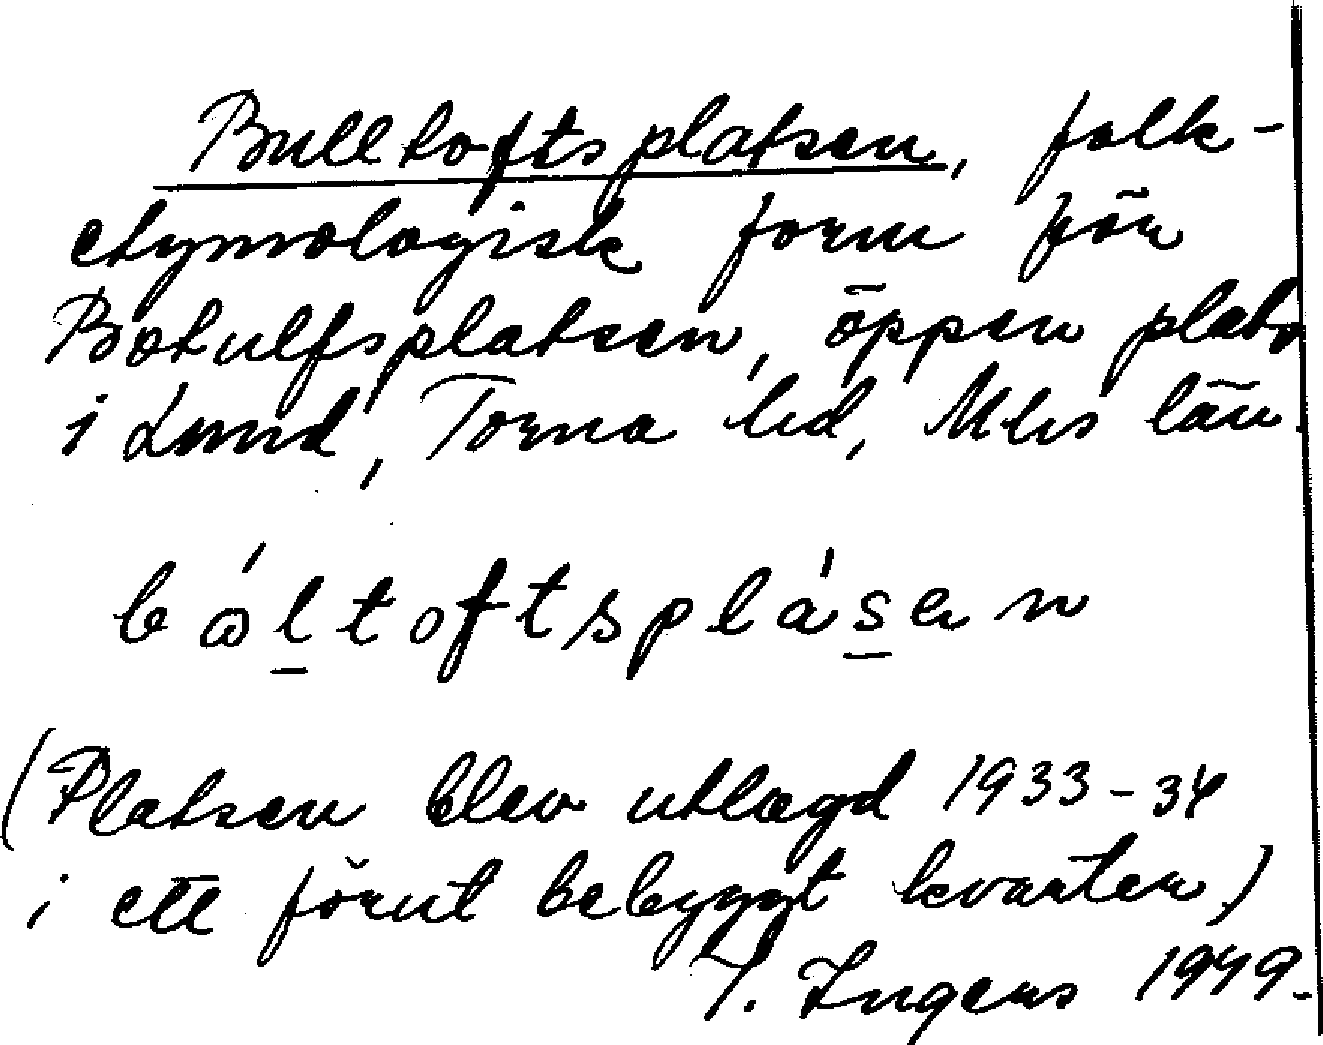 Bulltoftsplatsen, folk-
etymologisk form för
Botulfsplatsen, öppen plats
i Lund, Torna hd, Mlhs län.
bώltoftsplásen
(Platsen blev utlagd 1933-34
i ett förut bebyggt kvarter)
I. Ingers 1949.